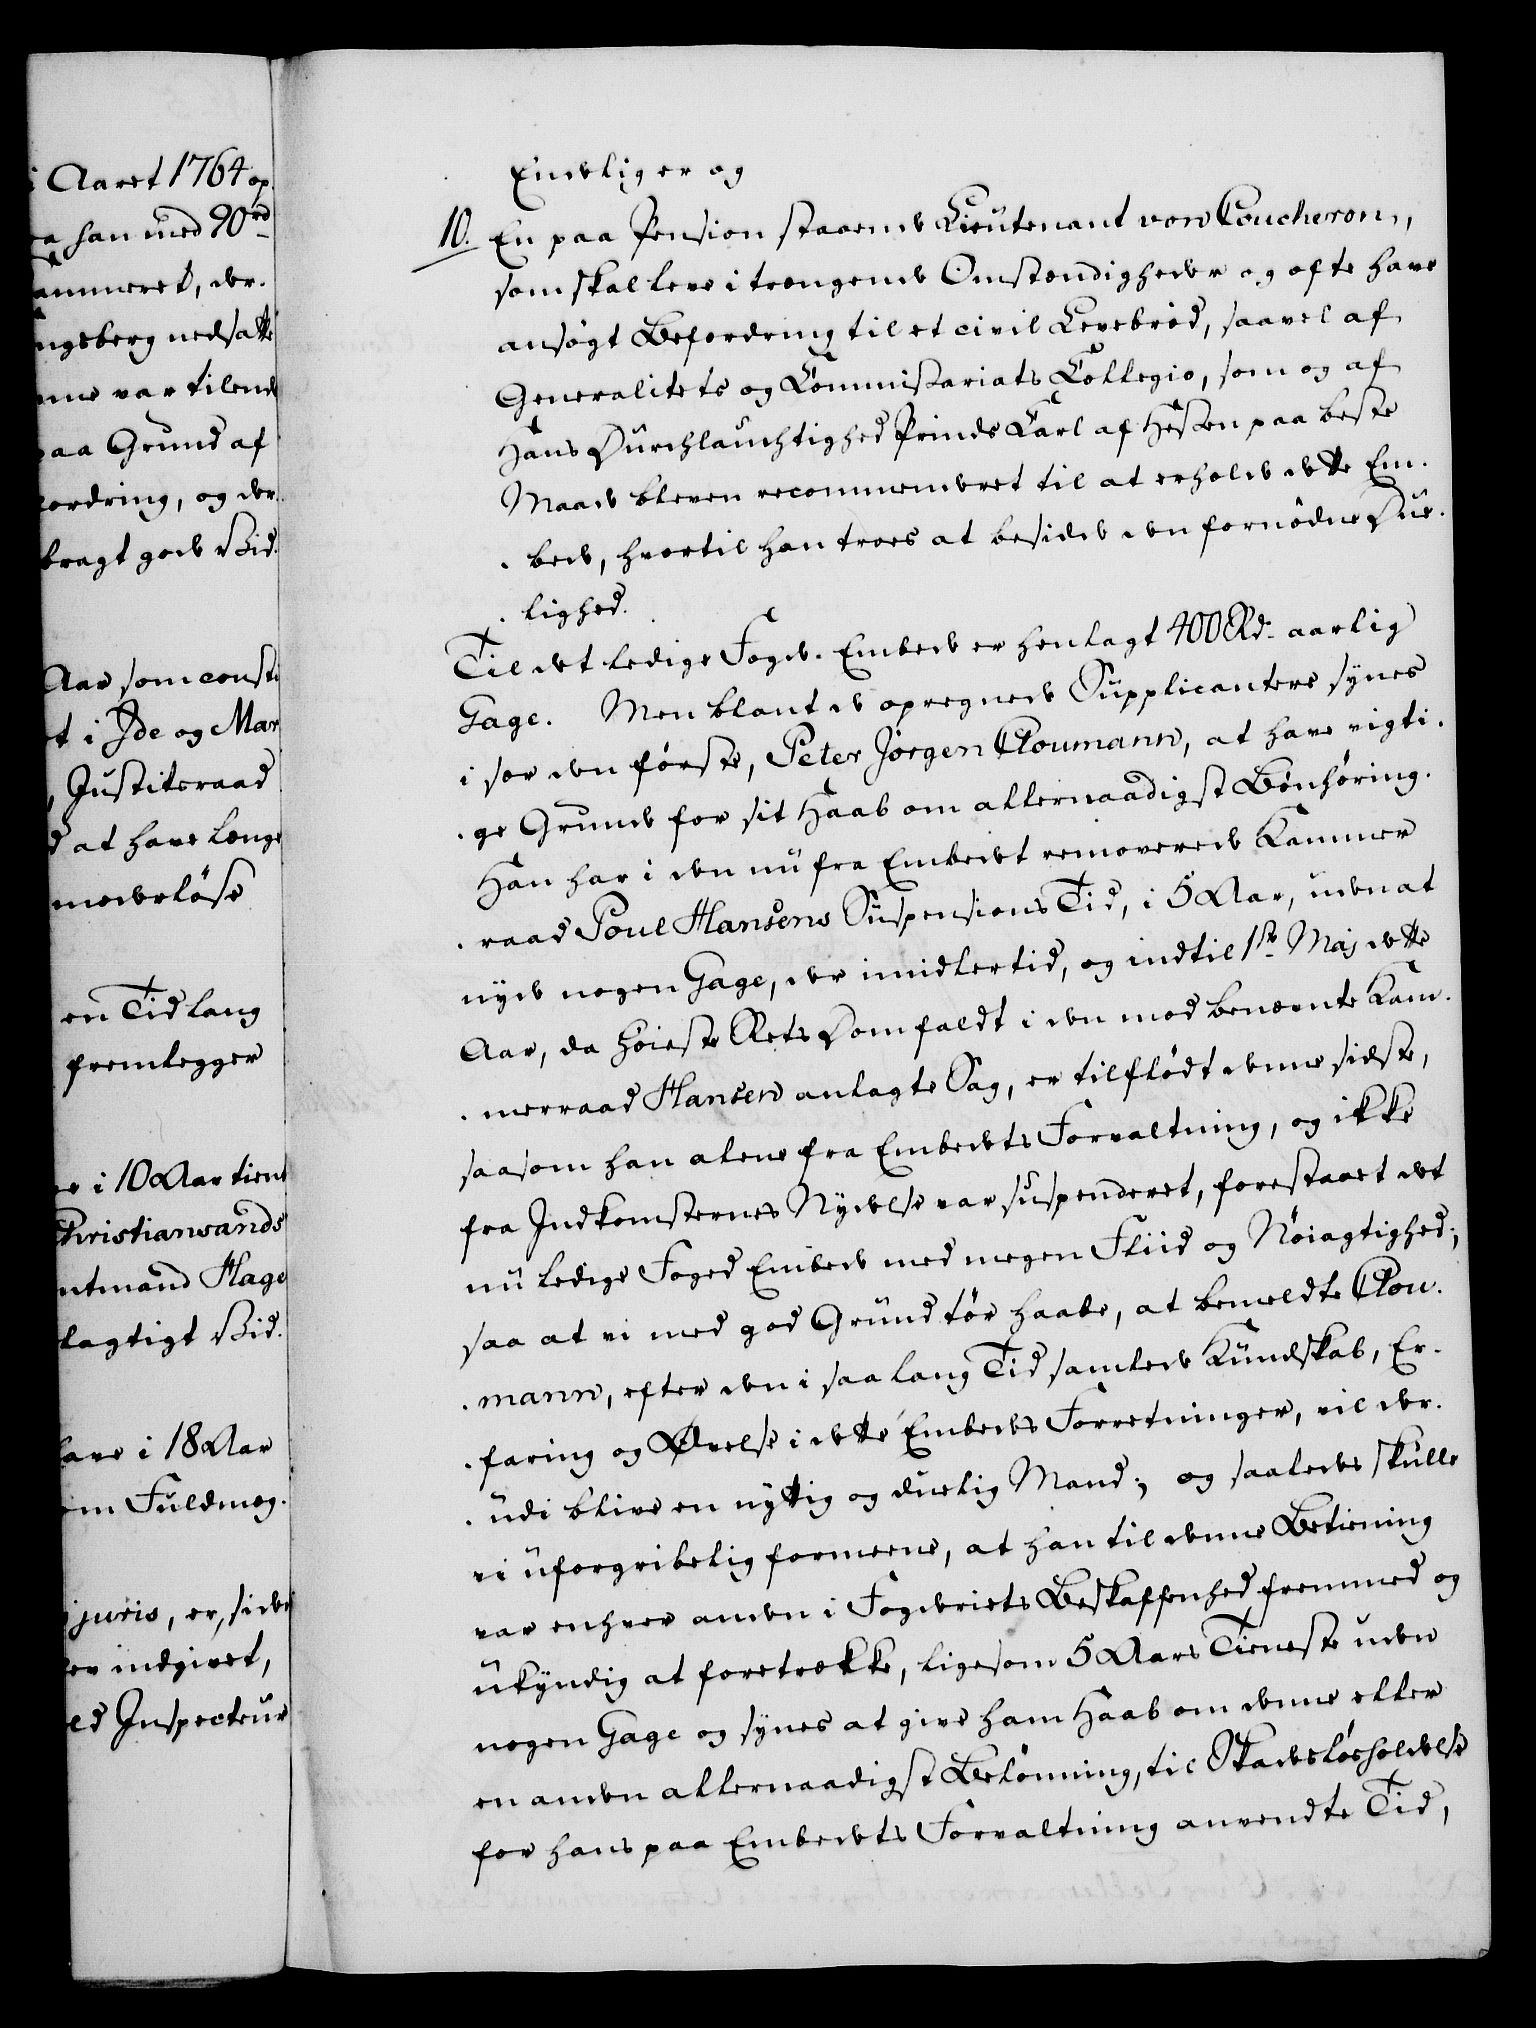 i Aaret 1764 op
ra han med 90rd
ammeret, der-
ngsberg nedsatte
nne var tilende
paa Grund af
fordring, og der-
bragt gode Bid.
Aar som const
t i Ide og Mar
, Justitsraad
d at have længe
moderløse
en Tid lang
fremlegger
er i 10 Aar tient
Christiansands
mtmand Hage
lagtigt Bid.
lave i 18 Aar
om Fuldmæg-
i juris, er, siden
lev indgivet,
ld Inspecteur
Endelig er og
10. En paa Pension staaende Lieutenant von Coucheron,
som skal leve i trængende Omstændigheder og ofte have
ansøgt Befordring til et civil Levebrød, saavel af
Generalitets og Commissariats Collegio, som og af
Hans Durchlauchtighed Prinds Carl af Hessen paa beste
Maade bleven recommenderet til at erholde dette Em-
bede, hvortil han troes at beside den fornødne Due-
lighed.
Til det ledige Fogd-Embede er henlagt 400 Rd. aarlig
Gage. Men blant de opregnede Supplicantere synes
i sær den første, Peter Jørgen Cloumann, at have vigti-
ge Grunde for sit Haab om allernaadigst Bønhøring.
Han har i den nu fra Embedet removerede Kammer
raad Poul Hansens Suspensions Tid, i 5 Aar, uden at
nyde nogen Gage, der imidlertid, og indtil 1ste Maj dette
Aar, da Høieste Rets Dom faldt i den mod benævnte Kam-
merraad Hansen anlagte Sag, er tilflødt denne sidste,
saasom han alene fra Embedets Forvaltning, og ikke
fra Indkomsternes Nydelse var suspenderet, forestaaet det
nu ledige Foged Embede med megen Fliid og Nøiagtighed;
saa at vi med god Grund tør haabe, at bemeldte Clou-
mann, efter den i saa lang Tid samlede Kundskab, Er-
faring og Øvelse i dette Embedes Forretninger, vil der-
udi blive en nyttig og duelig Mand; og saaledes skulle
vi uforgribelig formeene, at han til denne Betiening
var enhver anden i Fogderiets Beskaffenhed fremmed og
ukyndig at foretrække, ligesom 5 Aars Tieneste uden
nogen Gage og synes at give ham Haab om denne eller
en anden allernaadigst Belønning, til Skadesløsholdelse
for hans paa Embedets Forvaltning anvendte Tid,